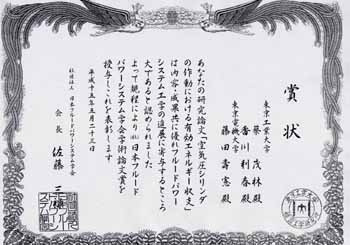 賞状
東京工業大学
蔡茂林殿
香川利春殿
東京電機大学
藤田壽憲殿
あなたの研究論文「空気圧シリンダ
の作動における有効エネルギー収支」
は内容・成果共に優れフルードパワー
システム工学の進展に寄与するところ
大であると認められました
よって規程により(社)日本フルード
パワーシステム学会学術論文賞を
授与しこれを表彰します
平成十五年五月二十三日
社団法人 日本フルードパワーシステム学会
会長 佐藤三